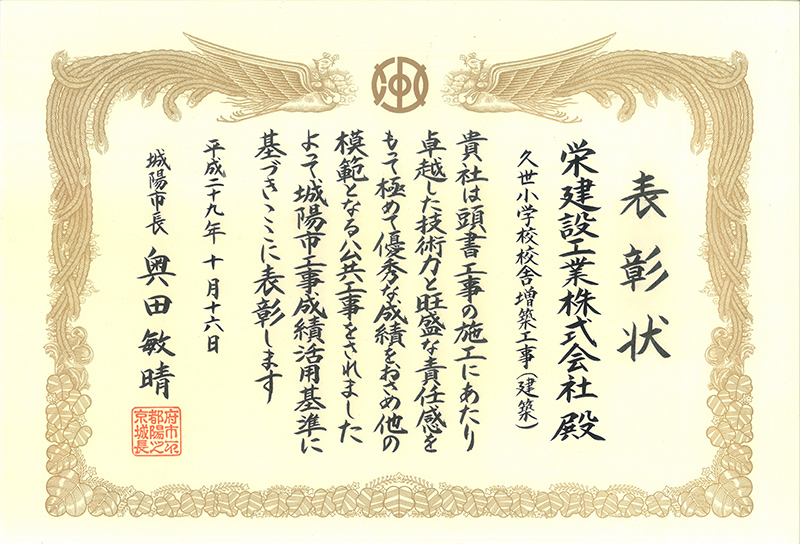 表彰状
栄建設工業株式会社 殿
久世小学校校舎増築工事（建築）
貴社は頭書工事の施工にあたり
卓越した技術力と旺盛な責任感を
もって極めて優秀な成績をおさめ他の
模範となる公共工事をされました
よって城陽市工事成績活用基準に
基づきここに表彰します
平成二十九年 十月十六日
城陽市長 奥田敏晴